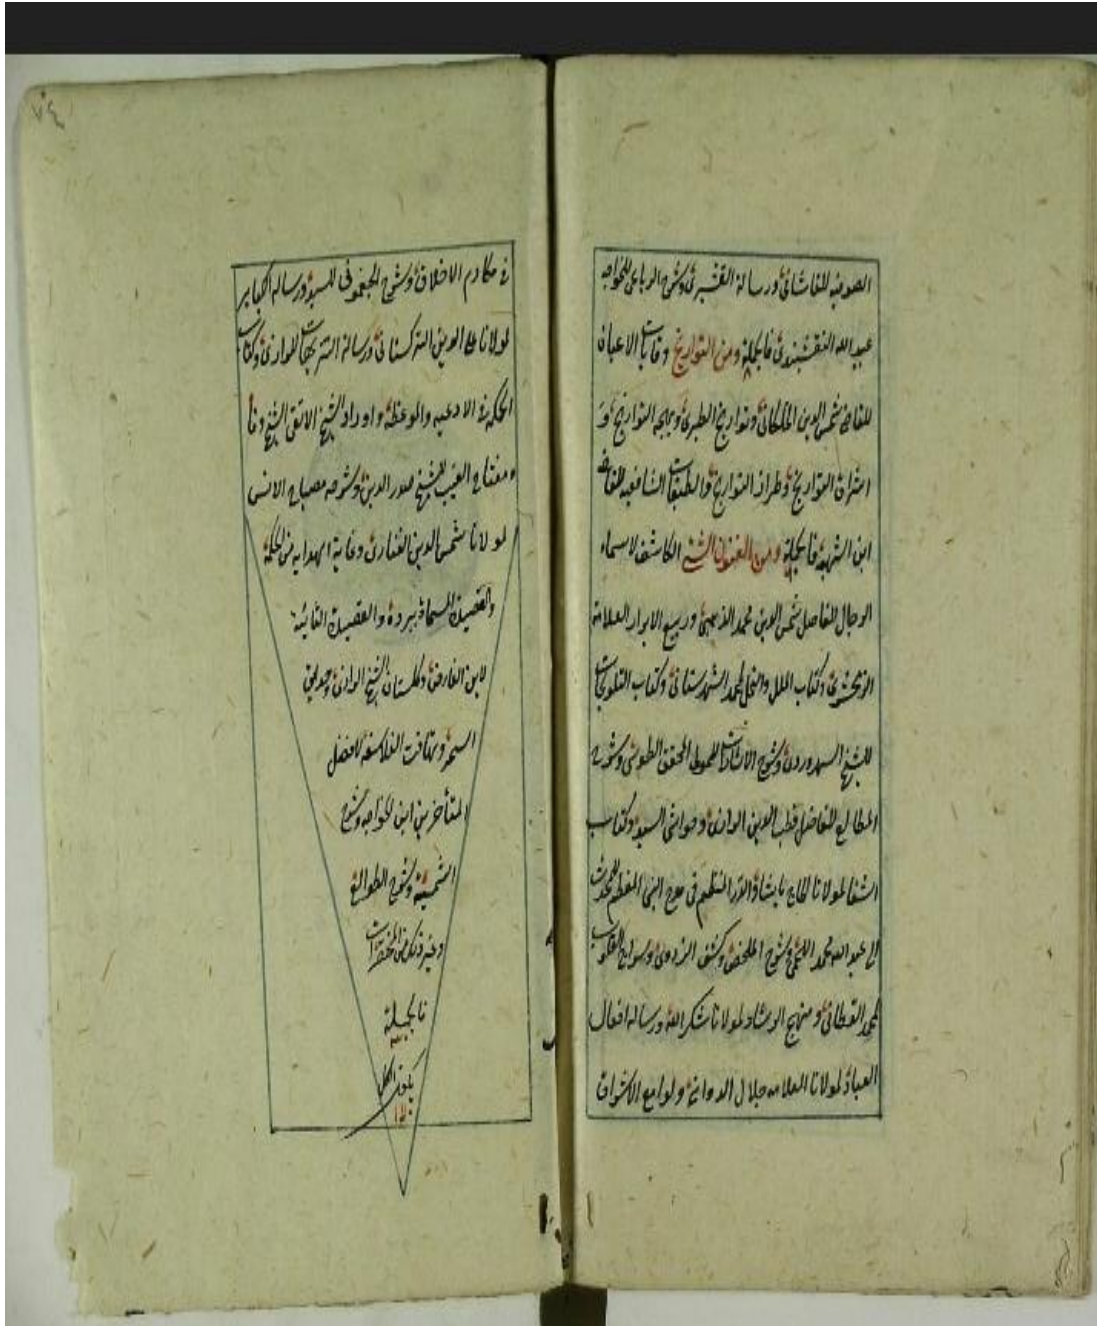 الصوفيه للقاشانى ورسالة القشيرى وشرح الرباعى للخواجه
عبيد الله النقشبندى فالجملة ومن التواريخ وفايات الاعيان
للقاضى شمس الدين الخلكانى وتواريخ الطبرى وبهجه التواريخ و
اشراق التواريخ وطراز التواريخ والطبقات الشافعيه للقاضى
ابن الشهبه فالجملة ومن الفنون الشتى الكاشف لاسماء
الرجال للفاضل شمس الدين محمد الذهبى وربيع الابرار للعلامة
الزمخشرى وكتاب الملل والنحل لمحمد الشهرستانى وكتاب التلويحات
للشيخ السهروردى وشرح الاشارات للمولى المحقق الطوسى وشرح
المطالع للفاضل قطب الدين الرازى وحواشى السيد وكتاب
الشفا لمولانا الحاج باشا والدر المنظم فى مدح النبى المعظم للمحدث
ابى عبد الله محمد اللخمى وشرح الملخص وكشف البزدوى وسوانح القلوب
لمحمد القطانى ومنهج الرشاد لمولانا شكر الله ورساله افعال
العباد لمولانا العلامه جلال الدوانى ولوامع الاشراق
فى مكارم الاخلاق وشرح الجغمونى للسيد ورساله الكبابر
لمولانا علاء الدين التركستانى ورسالة التربيحات للرازى وكتاب
الحكم فى الادعيه والموعظه واوراد الشيخ الاتقى الشيخ وفا
ومفتاح الغيب للشيخ صدر الدين وشرحه مصباح الانس
لمولانا شمس الدين الفنارى وغاية الهدايه من الحكمة
والقصيدة المسماة ببردة والقصيدة التائيه
لابن الفارض وكلستان الشيخ الرازى وحدايق
السحر وتهافت الفلاسفه لافضل
المتأخرين ابن الخواجه وشرح
الشمسية وشرح الطوالع
وغير ذلك من المختصرات
فالجملة
يكون الكل